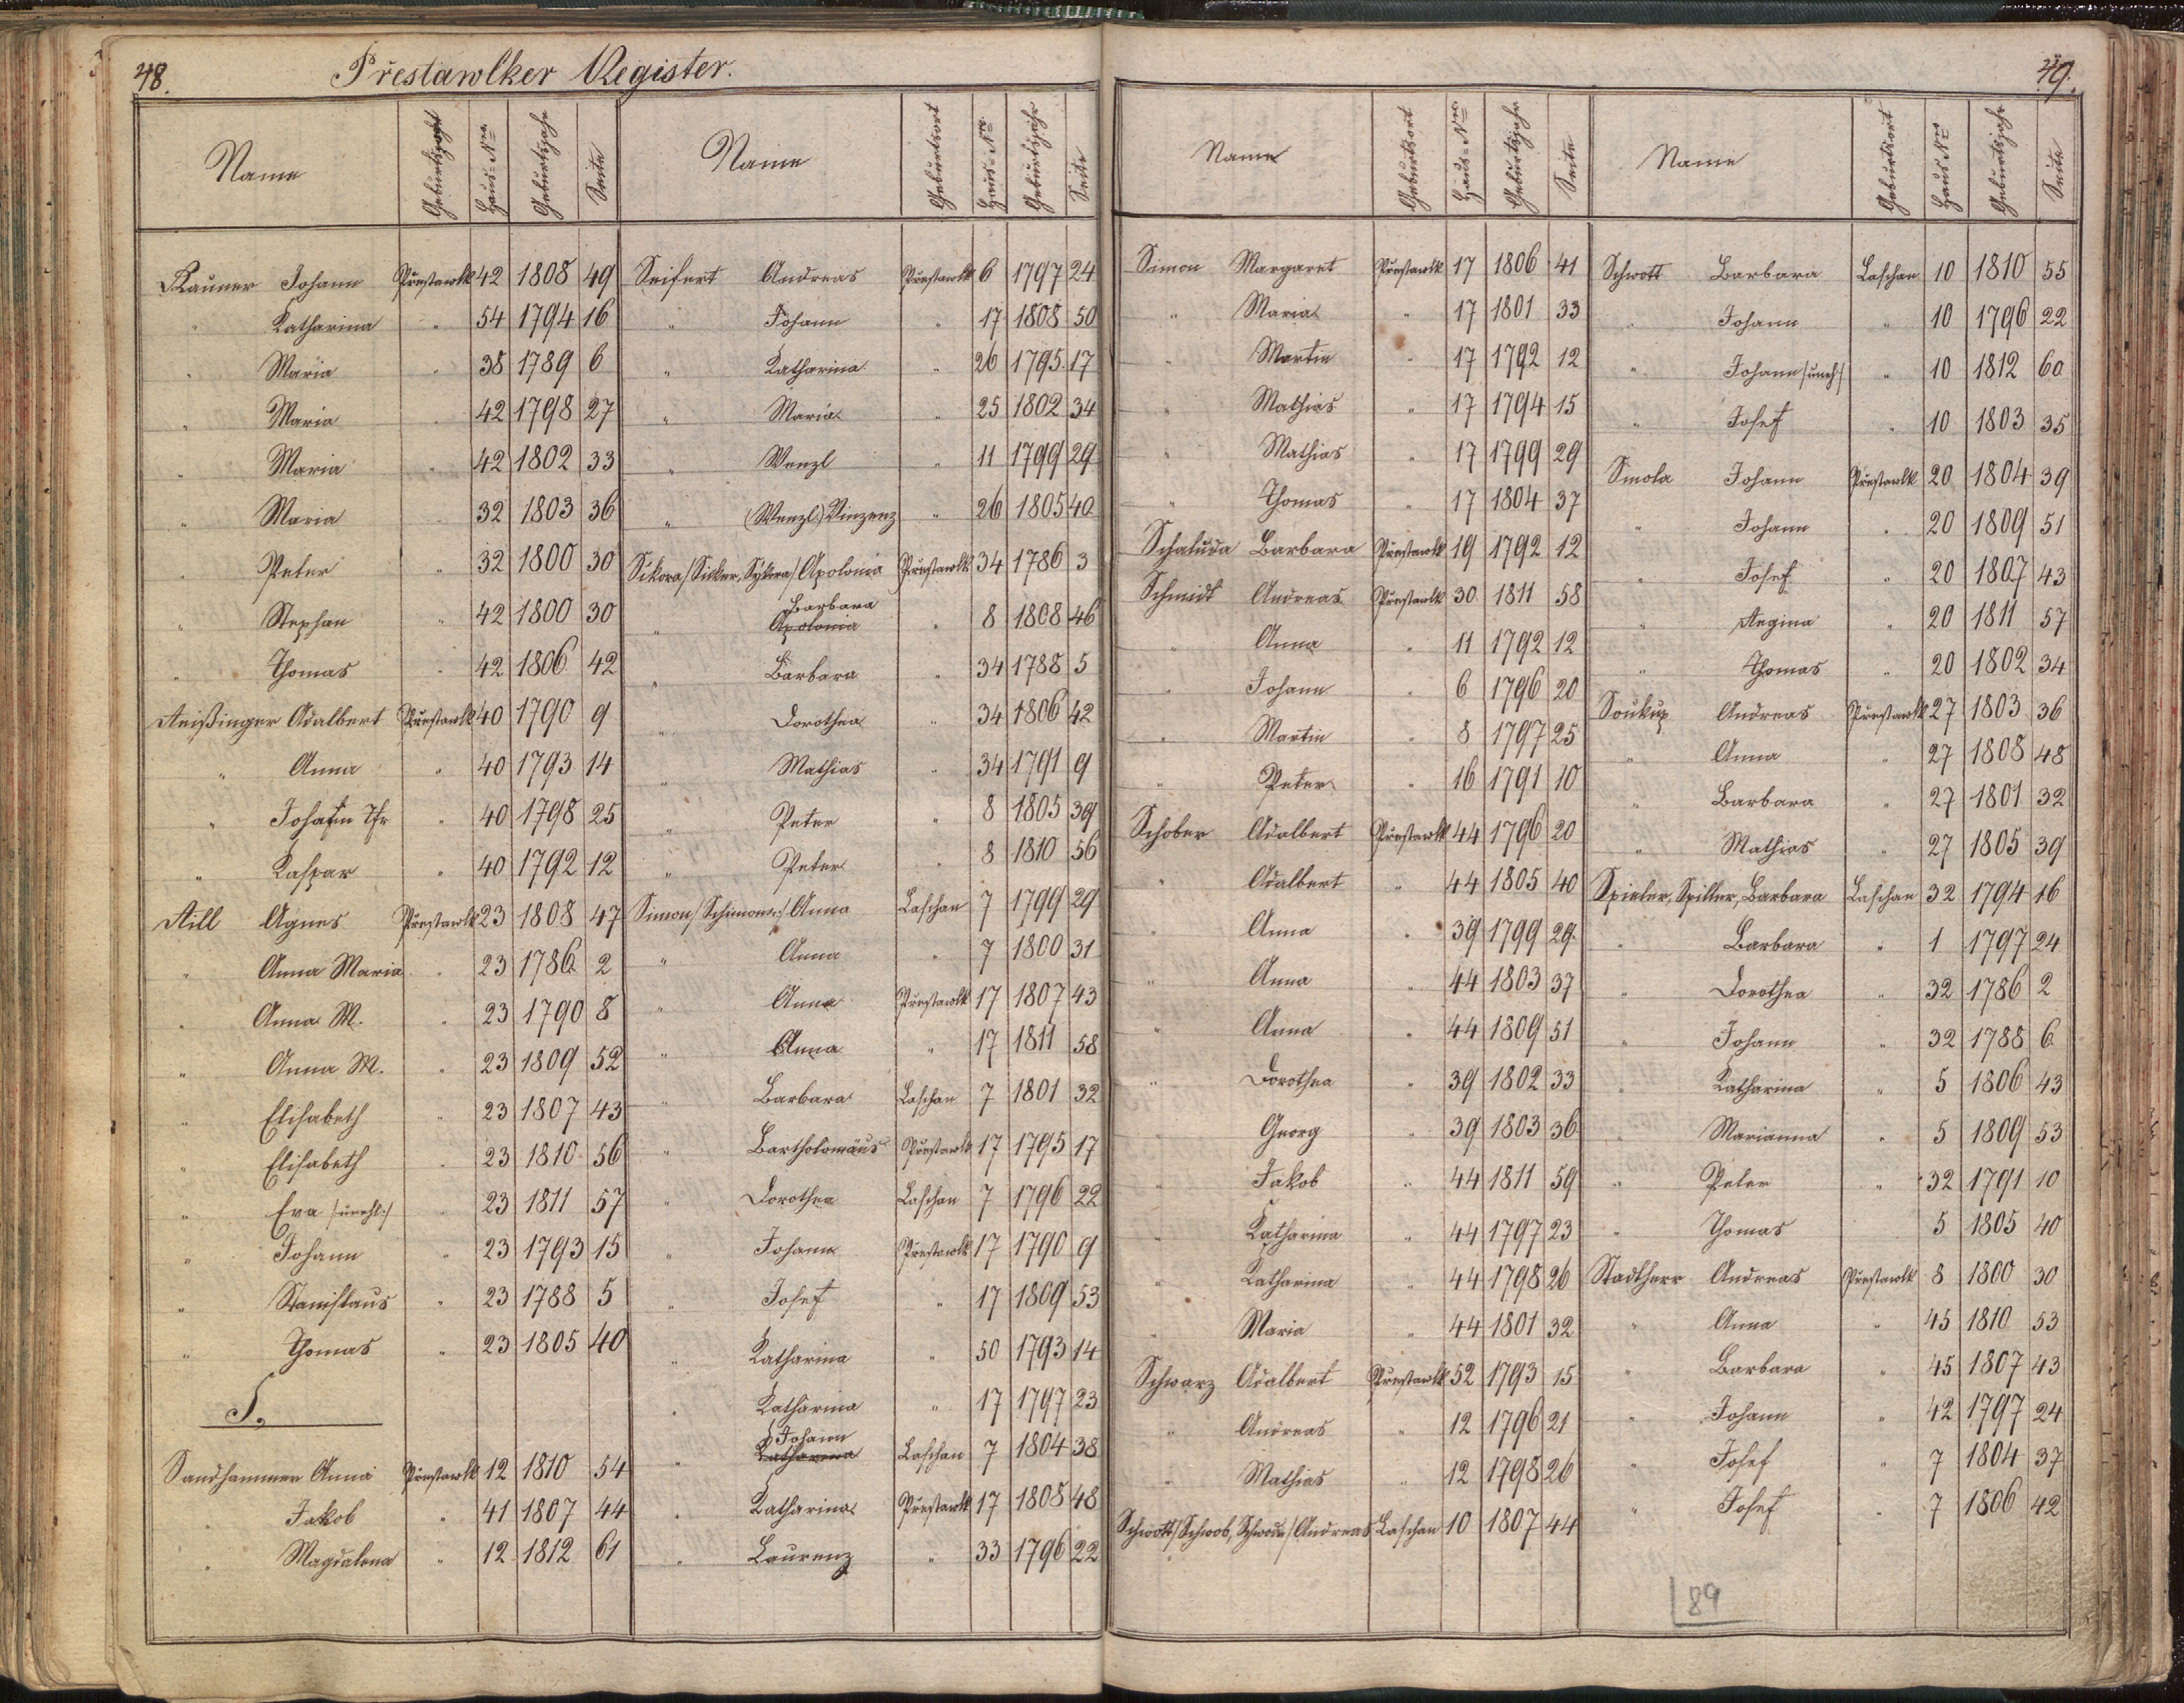 48.
Přestawlker Register.
Name Geburtsort Haus-Nro Geburtsjahr Seite
Rauner Johann Přestawlk 42 1808 49
" Katharina " 54 1794 16
" Maria " 38 1789 6
" Maria " 42 1798 27
" Maria " 42 1802 33
" Maria " 32 1803 36
" Peter " 32 1800 30
" Stephan " 42 1800 30
" Thomas " 42 1806 42
Reißinger Adalbert Přestawlk 40 1790 9
" Anna " 40 1793 14
" Johann " 40 1798 25
" Kaspar " 40 1792 12
Rill Agnes Přestawlk 23 1808 47
" Anna Maria " 23 1786 2
" Anna M. " 23 1790 8
" Anna M. " 23 1809 52
" Elisabeth " 23 1807 43
" Elisabeth " 23 1810 56
" Eva /:unehl:/ " 23 1811 57
" Johann " 23 1793 15
" Stanislaus " 23 1788 5
" Thomas " 23 1805 40
S.
Sandhammer Anna Přestawlk 12 1810 54
" Jakob " 41 1807 44
" Magdalena " 12 1812 61
Name Geburtsort Haus-Nro Geburtsjahr Seite
Seifert Andreas Přestawlk 6 1797 24
" Johann " 17 1808 50
" Katharina " 26 1795 17
" Maria " 25 1802 34
" Wenzl " 11 1799 29
" (Wenzl) Vinzenz " 26 1805 40
Sikora /Sicker, Sykora/ Apolonia Přestawlk 34 1786 3
Barbara
" Apolonia " 8 1808 46
" Barbara " 34 1788 5
" Dorothea " 34 1806 42
" Mathias " 34 1791 9
" Peter " 8 1805 39
" Peter " 8 1810 56
Simon /Schimon:/ Anna Laschan 7 1799 29
" Anna " 7 1800 31
" Anna Přestawlk 17 1807 43
" Anna " 17 1811 58
" Barbara Laschan 7 1801 32
" Bartholomäus Přestawlk 17 1795 17
" Dorothea Laschan 7 1796 22
" Johann Přestawlk 17 1790 9
" Josef " 17 1809 53
" Katharina " 50 1793 14
" Katharina " 17 1797 23
Johann
" Katharina Laschan 7 1804 38
" Katharina Přestawlk 17 1808 48
" Laurenz " 33 1796 22
49.
Name Geburtsort Haus-Nro Geburtsjahr Seite
Simon Margaret Přestawlk 17 1806 41
" Maria " 17 1801 33
" Martin " 17 1792 12
" Mathias " 17 1794 15
" Mathias " 17 1799 29
" Thomas " 17 1804 37
Schaluda Barbara Přestawlk 19 1792 12
Schmidt Andreas Přestawlk 30 1811 58
" Anna " 11 1792 12
" Johann " 6 1796 20
" Martin " 8 1797 25
" Peter " 16 1791 10
Schober Adalbert Přestawlk 44 1796 20
" Adalbert " 44 1805 40
" Anna " 39 1799 29
" Anna " 44 1803 37
" Anna " 44 1809 51
" Dorothea " 39 1802 33
" Georg " 39 1803 36
" Jakob " 44 1811 59
" Katharina " 44 1797 23
" Katharina " 44 1798 26
" Maria " 44 1801 32
Schwarz Adalbert Přestawlk 52 1793 15
" Andreas " 12 1796 21
" Mathias " 12 1798 26
Schwott /Schwob, Schwoda/ Andreas Laschan 10 1807 44
Name Geburtsort Haus Nro Geburtsjahr Seite
Schwott Barbara Laschan 10 1810 55
" Johann " 10 1796 22
" Johann /uneh/ " 10 1812 60
" Josef " 10 1803 35
Smola Johann Přestawlk 20 1804 39
" Johann " 20 1809 51
" Josef " 20 1807 43
" Regina " 20 1811 57
" Thomas " 20 1802 34
Soukup Andreas Přestawlk 27 1803 36
" Anna " 27 1808 48
" Barbara " 27 1801 32
" Mathias " 27 1805 39
Spieler, Spiller, Barbara Laschan 32 1794 16
" Barbara " 1 1797 24
" Dorothea " 32 1786 2
" Johann " 32 1788 6
" Katharina " 5 1806 43
" Marianna " 5 1809 53
" Peter " 32 1791 10
" Thomas 5 1805 40
Stadtherr Andreas Přestawlk 8 1800 30
" Anna " 45 1810 53
" Barbara " 45 1807 43
" Johann " 42 1797 24
" Josef " 7 1804 37
" Josef " 7 1806 42
89